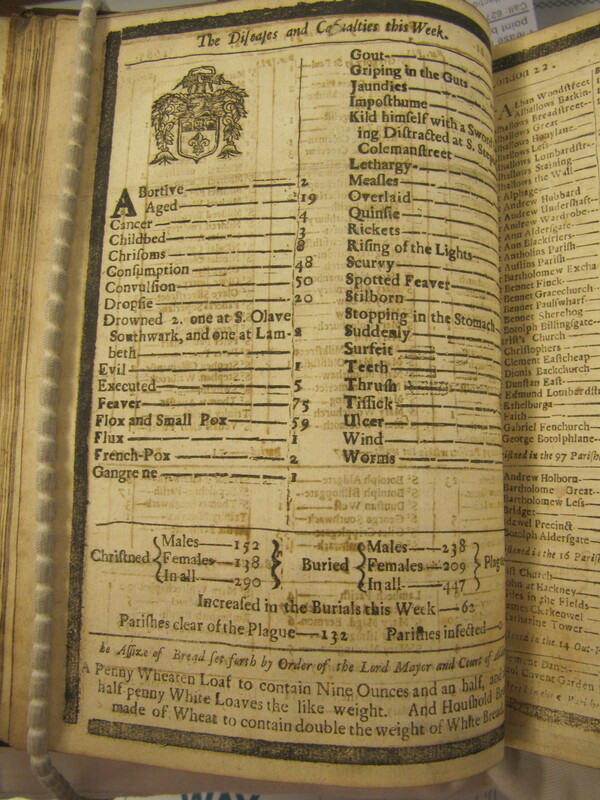 The Diseases and Casualties this Week.
Abortive 2
Aged 19
Cancer 4
Childbed 3
Chrisoms 8
Consumption 48
Convulsion 50
Dropsie 20
Drowned 2. one at S. Olave
Southwark, and one at Lam- 2
beth
Evil 1
Executed 5
Feaver 75
Flox and Small Pox 59
Flux 1
French-Pox 2
Gangrene 1
Gout
Griping in the Guts
Jaundies
Imposthume
Kild himself with a Sword
ing Distracted at S.
Colemanstreet
Lethargy
Measles
Overlaid
Quinsie
Rickets
Rising of the Lights
Scurvy
Spotted Feaver
Stilborn
Stopping in the Stomach
Suddenly
Surfeit
Teeth
Thrush
Tissick
Ulcer
Wind
Worms
Christned { Males 152 Females 138 In all 290 }
Buried { Males 238 Females 209 In all 447 } Plag
Increased in the Burials this Week 62
Parishes clear of the Plague 132 Parishes infected
he Assize of Bread set forth by Order of the Lord Mayor and Court of
A Penny Wheaten Loaf to contain Nine Ounces and an half, and
half-penny White Loaves the like weight. And Houshold
made of Wheat to contain double the weight of White Bread
Alban Woodstreet
lhallows Barkin
lhallows Breadstreet
lhallows Great
lhallows Honylane
lhallows Less
lhallows Lombardstr
lhallows Staining
lhallows the Wall
Alphage
Andrew Hubbard
Andrew Undershaft
Andrew Wardrobe
Ann Aldersgate
Ann Blackfriers
Antholins Parish
Austins Parish
Bartholomew Excha
Bennet Finck
Bennet Gracechurch
Bennet Paulswharf
Bennet Sherehog
Botolph Billingsgate
rist's Church
Christophers
Clement Eastcheap
Dionis Backchurch
Dunstan East
Edmund Lombardst
Ethelburga
Faith
Gabriel Fenchurch
George Botolphlane
istned in the 97 Parish
Andrew Holborn
Bartholomew Great
Bartholomew Less
Bridget
idewel Precinct
otolph Aldersgate
istened in the 16 Parish
ist Church
ohn at Hackney
iles in the Fields
ames Clerkenwel
atharine Tower
in the 14 Out-P
ement Danes
ul Covent Garden